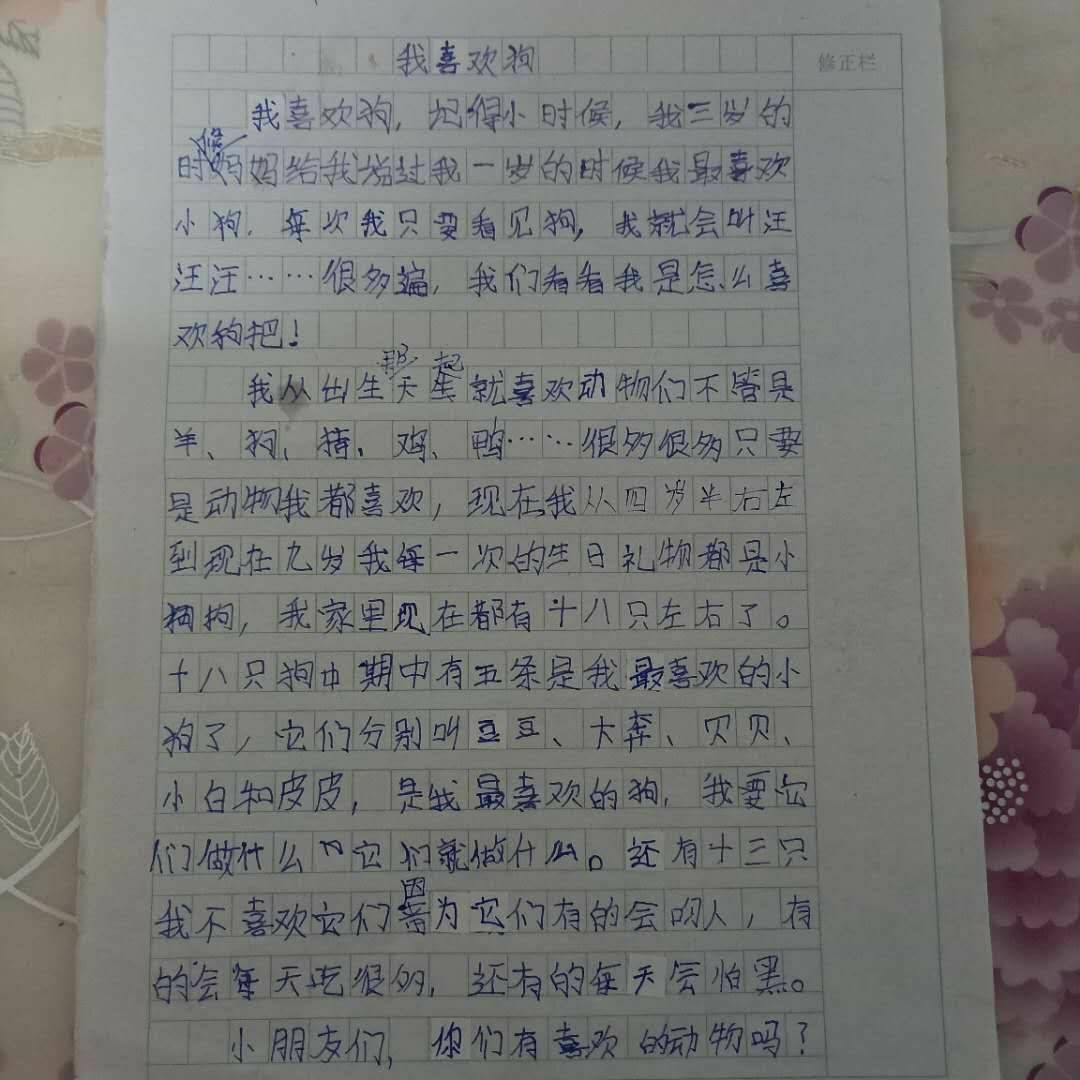 我喜欢狗
修正栏
我喜欢狗，记得小时候，我三岁的
时候妈妈给我说过我一岁的时候我最喜欢
小狗．每次我只要看见狗，我就会叫汪
汪汪……很多遍，我们看看我是怎么喜
欢狗把！
我从出生那天起就喜欢动物们不管是
羊、狗、猪、鸡、鸭……很多很多只要
是动物我都喜欢，现在我从四岁半右左
到现在九岁我每一次的生日礼物都是小
狗狗，我家里现在都有十八只左右了。
十八只狗中期中有五条是我最喜欢的小
狗了，它们分别叫豆豆、大奔、贝贝、
小白和皮皮，是我最喜欢的狗，我要它
们做什么它们就做什么。还有十三只
我不喜欢它们因为它们有的会咬人，有
的会每天吃很多，还有的每天会怕黑。
小朋友们，你们有喜欢的动物吗？